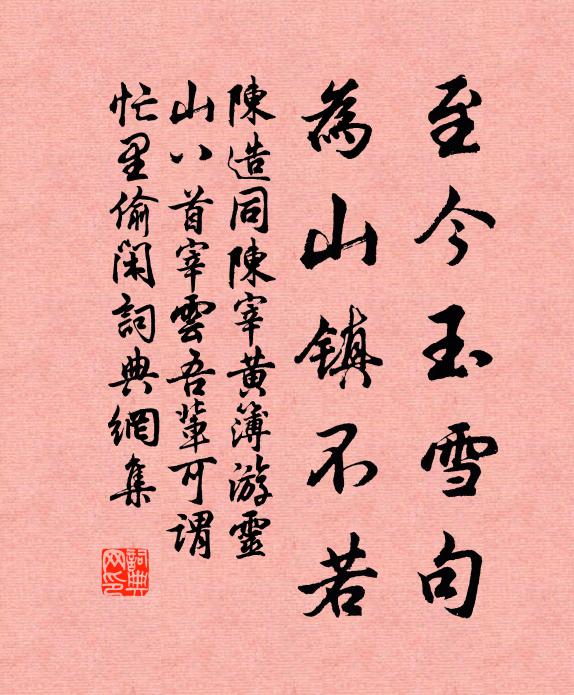 至今玉雪句
為山鎮不若
陳造同陳宰黄簿游靈
山八首宰雲吾輩可謂
忙里偷閑詞典網集
詞典網印